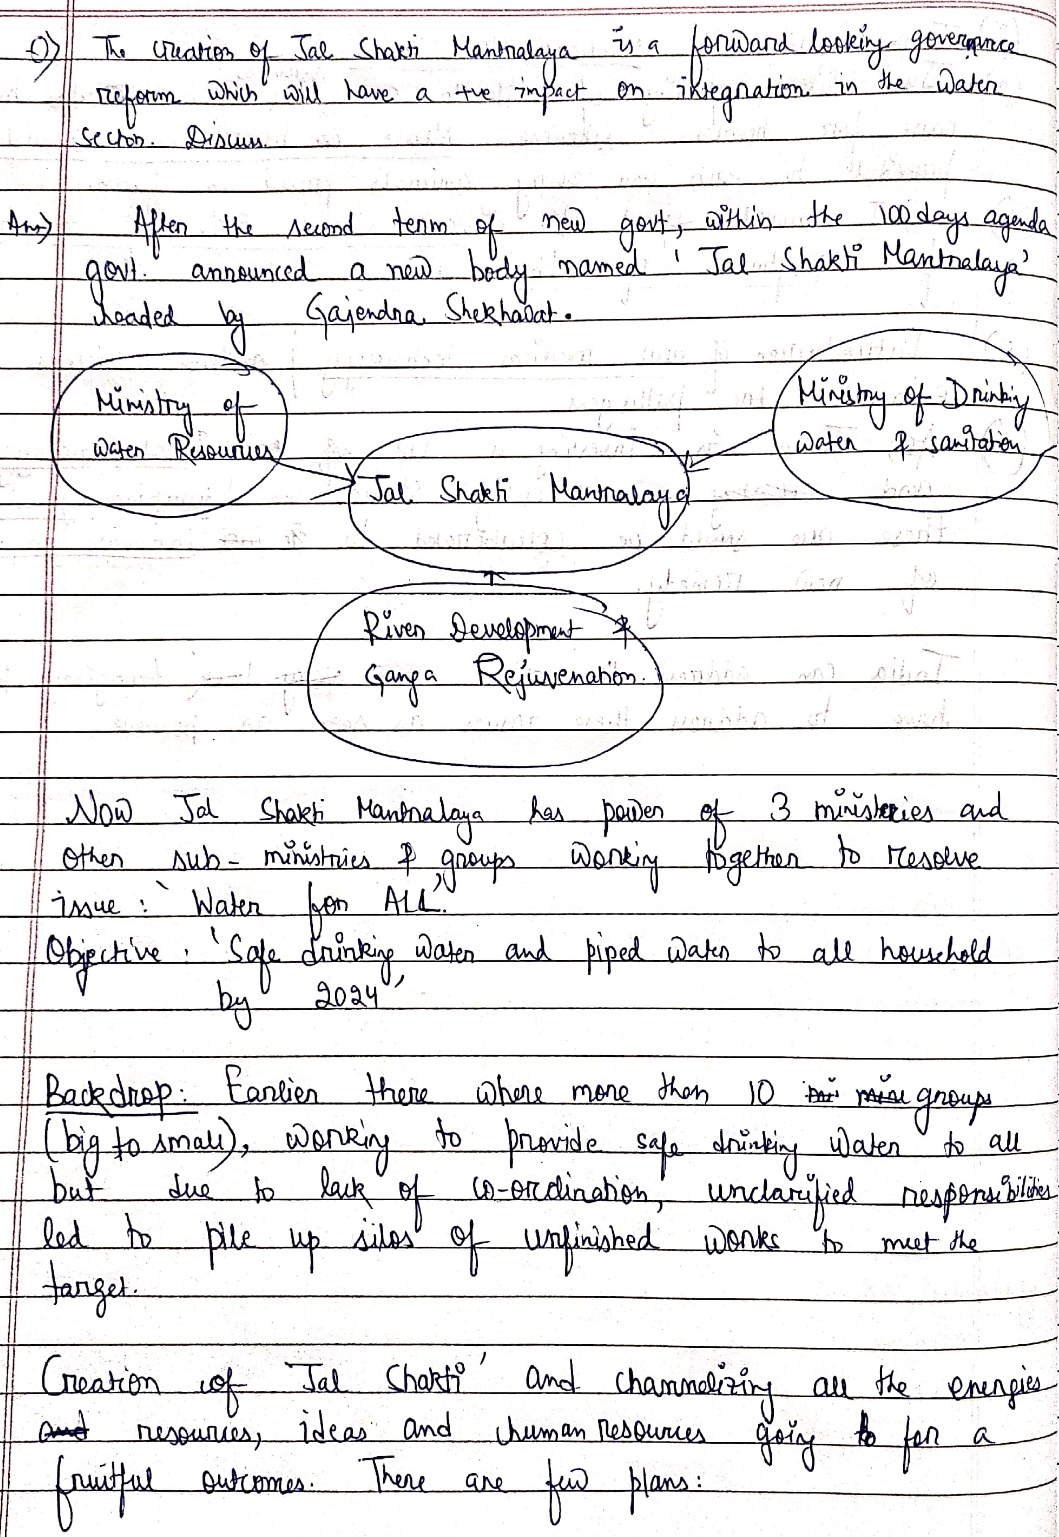 Q) The creation of Jal Shakti Mantralaya is a forward looking governance
reform which will have a +ve impact on integration in the water
sector. Discuss.
Ans) After the second term of new govt, within the 100 days agenda
govt. announced a new body named 'Jal Shakti Mantralaya'
headed by Gajendra Shekhawat.
Ministry of
Water Resources
Ministry of Drinking
water & sanitation
Jal Shakti Mantralaya
River Development &
Ganga Rejuvenation.
Now Jal Shakti Mantralaya has power of 3 ministeries and
other sub-ministries & groups working together to resolve
issue: 'Water for ALL'.
Objective: 'Safe drinking water and piped water to all household
by 2024'
Backdrop: Earlier there where more than 10 groups
(big to small), working to provide safe drinking water to all
but due to lack of co-ordination, unclarified responsibilities
led to pile up silos of unfinished works to meet the
target.
Creation of 'Jal Shakti' and channelizing all the energies
and resources, ideas and human resources going to for a
fruitful outcomes. There are few plans: